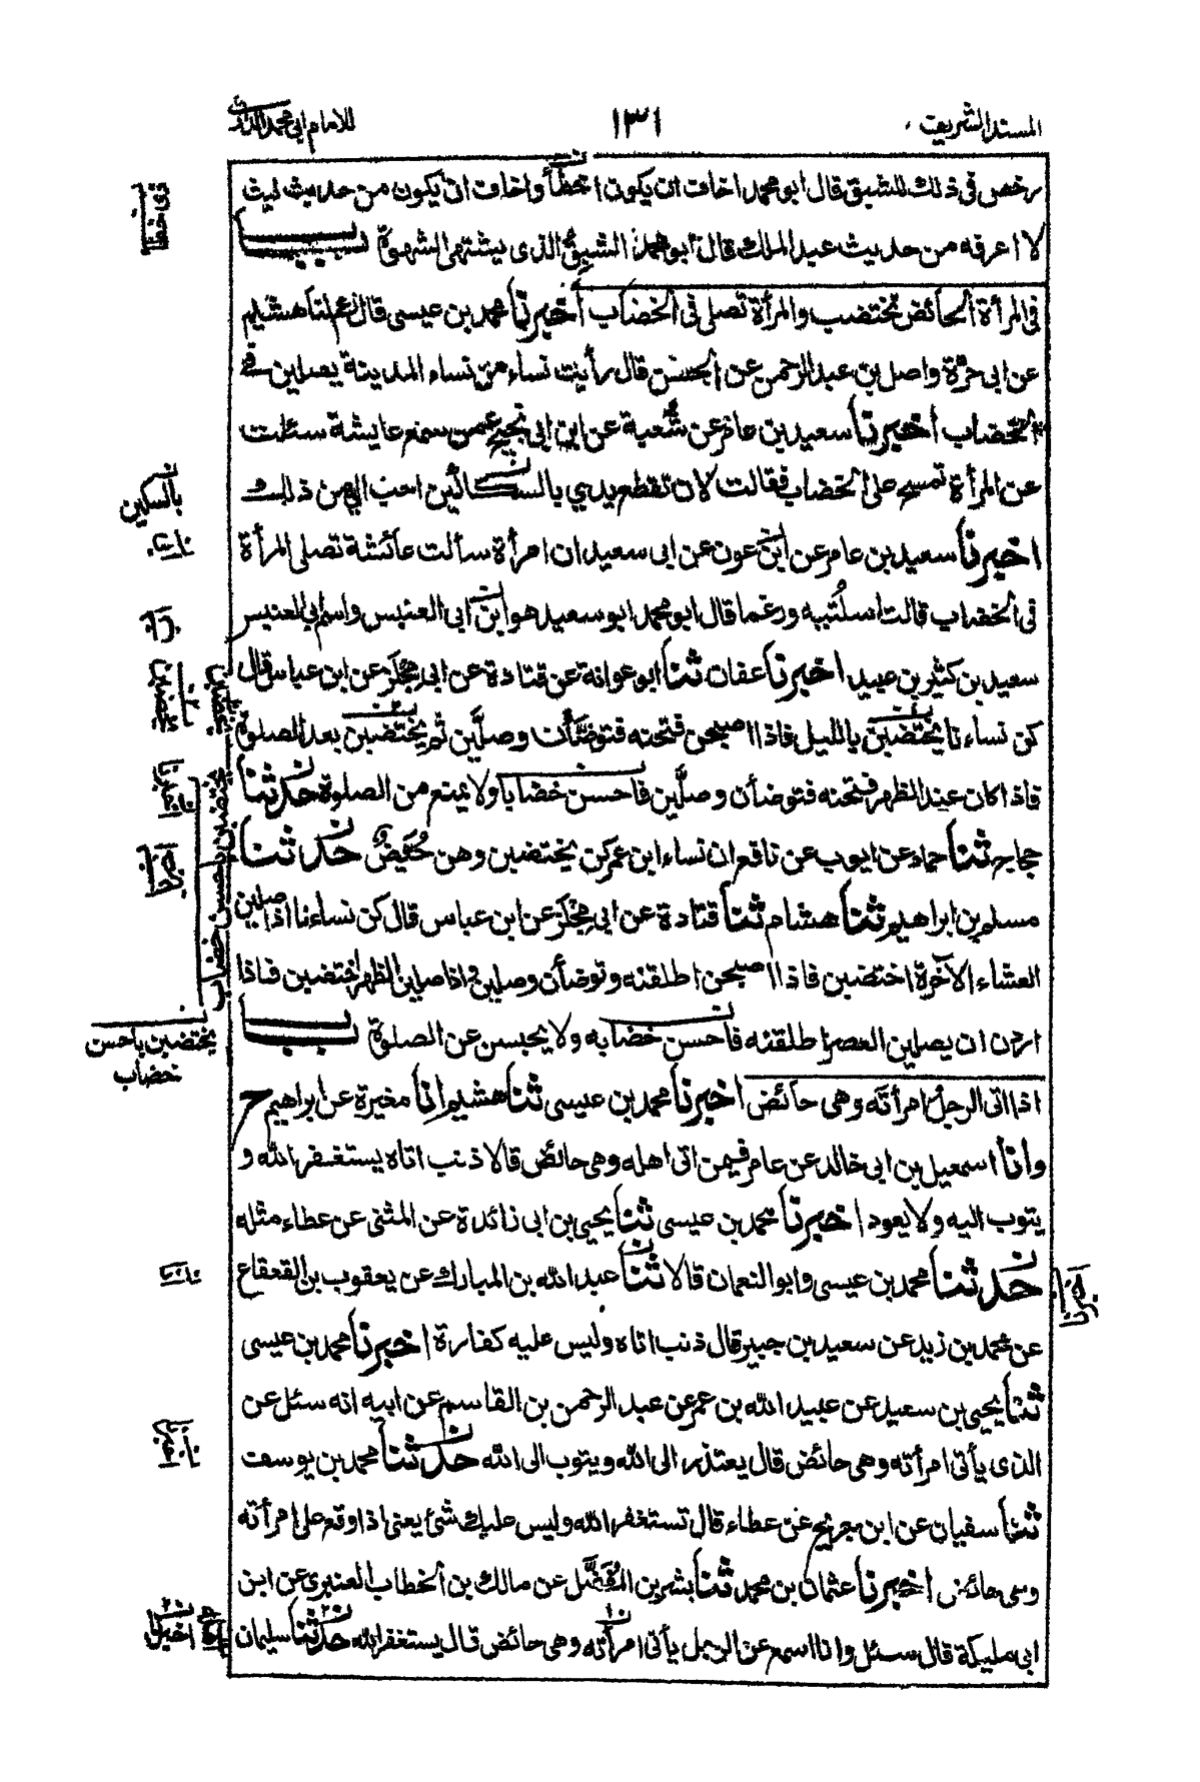 المسند الشريف
١٣١
للامام ابي محمد الدارمي
رخص في ذلك للشبق قال ابو محمد اخاف ان يكون اخطأ واخاف ان يكون من حديث ليث
لا اعرفه من حديث عبد الملك قال ابو محمد الشبق الذى يشتهى الشهوة باب
في المرأة الحائض تختضب والمرأة تصلى فى الخضاب أخبرنا محمد بن عيسى قال زعم لنا هشيم
عن ابى حرة واصل بن عبد الرحمن عن الحسن قال رأيت نساء من نساء المدينة يصلين فى
الخضاب اخبرنا سعيد بن عامر عن شعبة عن ابن ابى نجيح عمن سمع عايشة سئلت
عن المرأة تمسح على الخضاب فقالت لان تقطع يدي بالسكاكين احب الي من ذلك
اخبرنا سعيد بن عامر عن ابن عون عن ابى سعيد ان امرأة سألت عائشة تصلى المرأة
فى الخضاب قالت اسلتيه ورغما قال ابو محمد ابو سعيد هو ابن ابى العنبس واسم ابي العنبس
سعيد بن كثير بن عبيد اخبرنا عفان ثنا ابو عوانة عن قتادة عن ابى مجلز عن ابن عباس قال
كن نساءنا يختضبن بالليل فاذا اصبحن فتحنه فتوضأن وصلين ثم يختضبن بعد الصلوة
فاذا كان عند الظهر فتحنه فتوضأن وصلين فاحسن خضابا ولا يمنع من الصلوة حدثنا
حجاج ثنا حماد عن ايوب عن نافع ان نساء ابن عمر كن يختضبن وهن حيض حدثنا
مسلم بن ابراهيم ثنا هشام ثنا قتادة عن ابى مجلز عن ابن عباس قال كن نساءنا اذا صلين
العشاء الآخرة اختضبن فاذا اصبحن اطلقنه وتوضأن وصلين واذا صلين الظهر اختضبن فاذا
اردن ان يصلين العصر اطلقنه فاحسن خضابه ولا يحبسن عن الصلوة باب
اذا اتى الرجل امرأته وهى حائض اخبرنا محمد بن عيسى ثنا هشيم انا مغيرة عن ابراهيم ح
وانا اسمعيل بن ابى خالد عن عامر فيمن اتى اهله وهى حائض قالا ذنب اتاه يستغفر الله و
يتوب اليه ولا يعود اخبرنا محمد بن عيسى ثنا يحيى بن ابى زائدة عن المثنى عن عطاء مثله
حدثنا محمد بن عيسى وابو النعمان قالا ثنا عبد الله بن المبارك عن يعقوب بن القعقاع
عن محمد بن زيد عن سعيد بن جبير قال ذنب اتاه وليس عليه كفارة اخبرنا محمد بن عيسى
ثنا يحيى بن سعيد عن عبيد الله بن عمر عن عبد الرحمن بن القاسم عن ابيه انه سئل عن
الذى يأتى امرأته وهى حائض قال يعتذر الى الله ويتوب الى الله حدثنا محمد بن يوسف
ثنا سفيان عن ابن جريج عن عطاء قال تستغفر الله وليس عليك شئ يعنى اذا وقع على امرأته
وهى حائض اخبرنا عثمان بن محمد ثنا بشر بن المفضل عن مالك بن الخطاب العنبرى عن ابن
ابى مليكة قال سئل وانا اسمع عن الرجل يأتى امرأته وهى حائض قال يستغفر الله حدثنا سليمان
بالسكين
يختضبن باحسن
خضاب